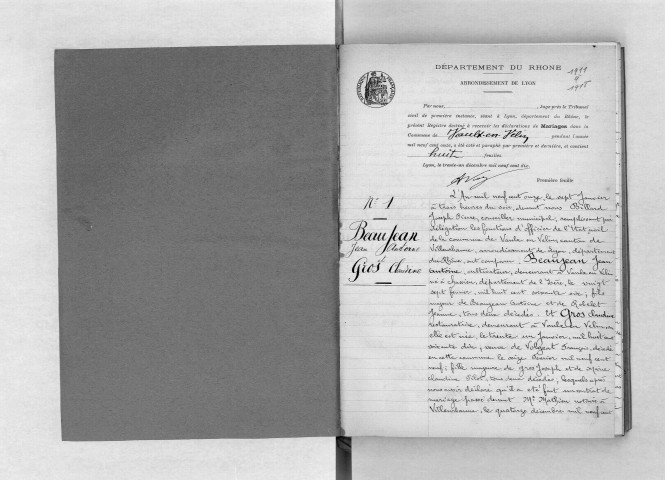 DÉPARTEMENT DU RHONE
1911
à
1915
ARRONDISSEMENT DE LYON
Par nous, Juge près le Tribunal
civil de première instance, séant à Lyon, département du Rhône, le
présent Registre destiné à recevoir les déclarations de Mariages dans la
Commune de Vaulx-en-Velin pendant l'année
mil neuf cent onze, a été coté et paraphé par première et dernière, et contient
huit feuilles
Lyon, le trente-un décembre mil neuf cent dix.
Première feuille
N° 1
Beaujean
Jean Antoine
et
Gros Claudine
L'An mil neuf cent onze, le sept Janvier
à trois heures du soir, devant nous Billard
Joseph Pierre, conseiller municipal, remplissant par
délégation les fonctions d'officier de l'Etat civil
de la commune de Vaulx en Velin, canton de
Villeurbanne, arrondissement de Lyon, département
du Rhône, ont comparu: Beaujean Jean
Antoine, cultivateur, demeurant à Vaulx en Velin
né à Chassieu, département de l'Isère, le vingt
sept février, mil huit cent soixante six; fils
majeur de Beaujean Antoine et de
Jeanne, tous deux décédés. Et Gros Claudine
restauratrice, demeurant à Vaulx en Velin où
elle est née, le trente un Janvier, mil huit cent
soixante dix; veuve de François, décédé
en cette commune le seize Février mil neuf cent
neuf; fille majeure de Gros Joseph et de Marie
Claudine, tous deux décédés; lesquels après
nous avoir déclaré qu'il a été fait un contrat de
mariage passé devant Me Mathieu notaire à
Villeurbanne, le quatorze décembre mil neuf cent